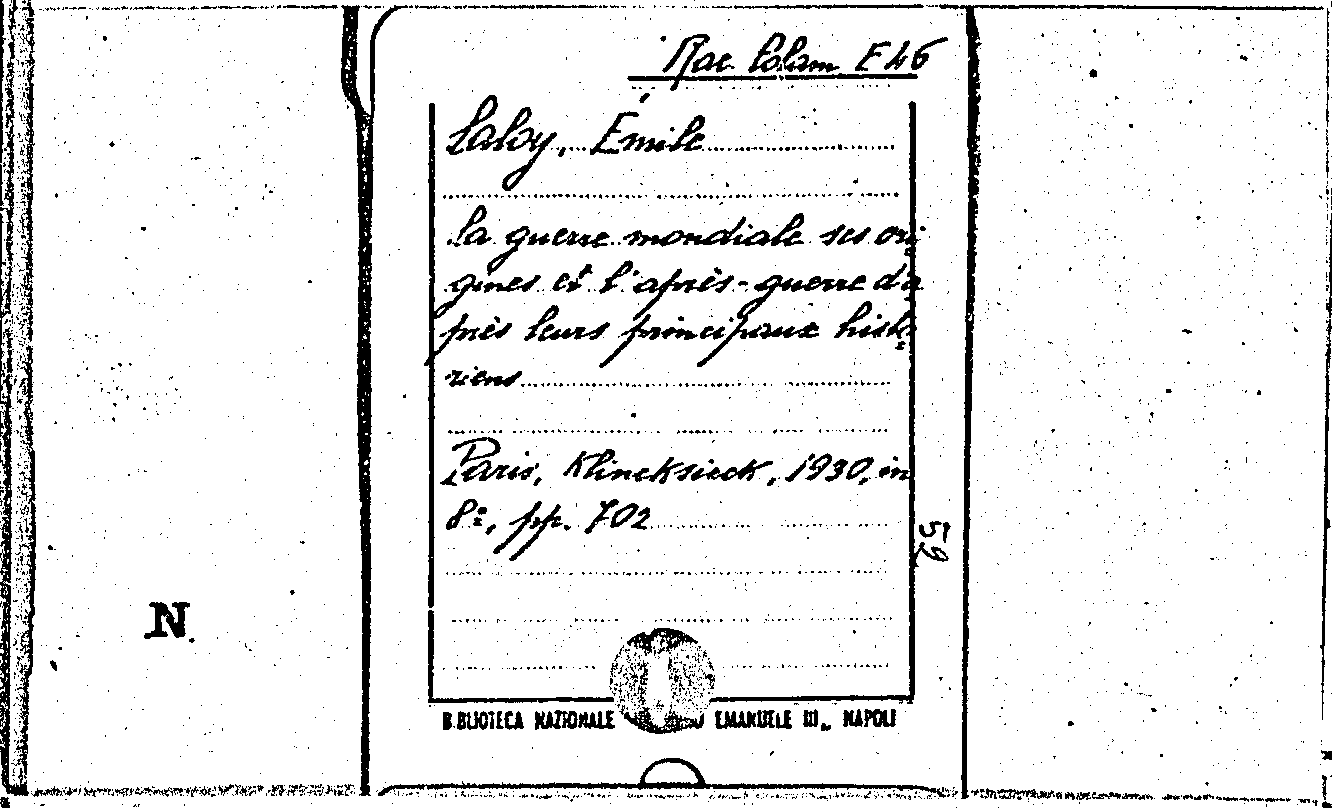 Rac. Colam. E 46
Laloy, Émile
La guerre mondiale ses ori
gines et l'après-guerre d'a
près leurs principaux histo
riens
Paris, Klincksieck, 1930, in
8º, pp. 702
59
N
BIBLIOTECA NAZIONALE EMANUELE III„ NAPOLI